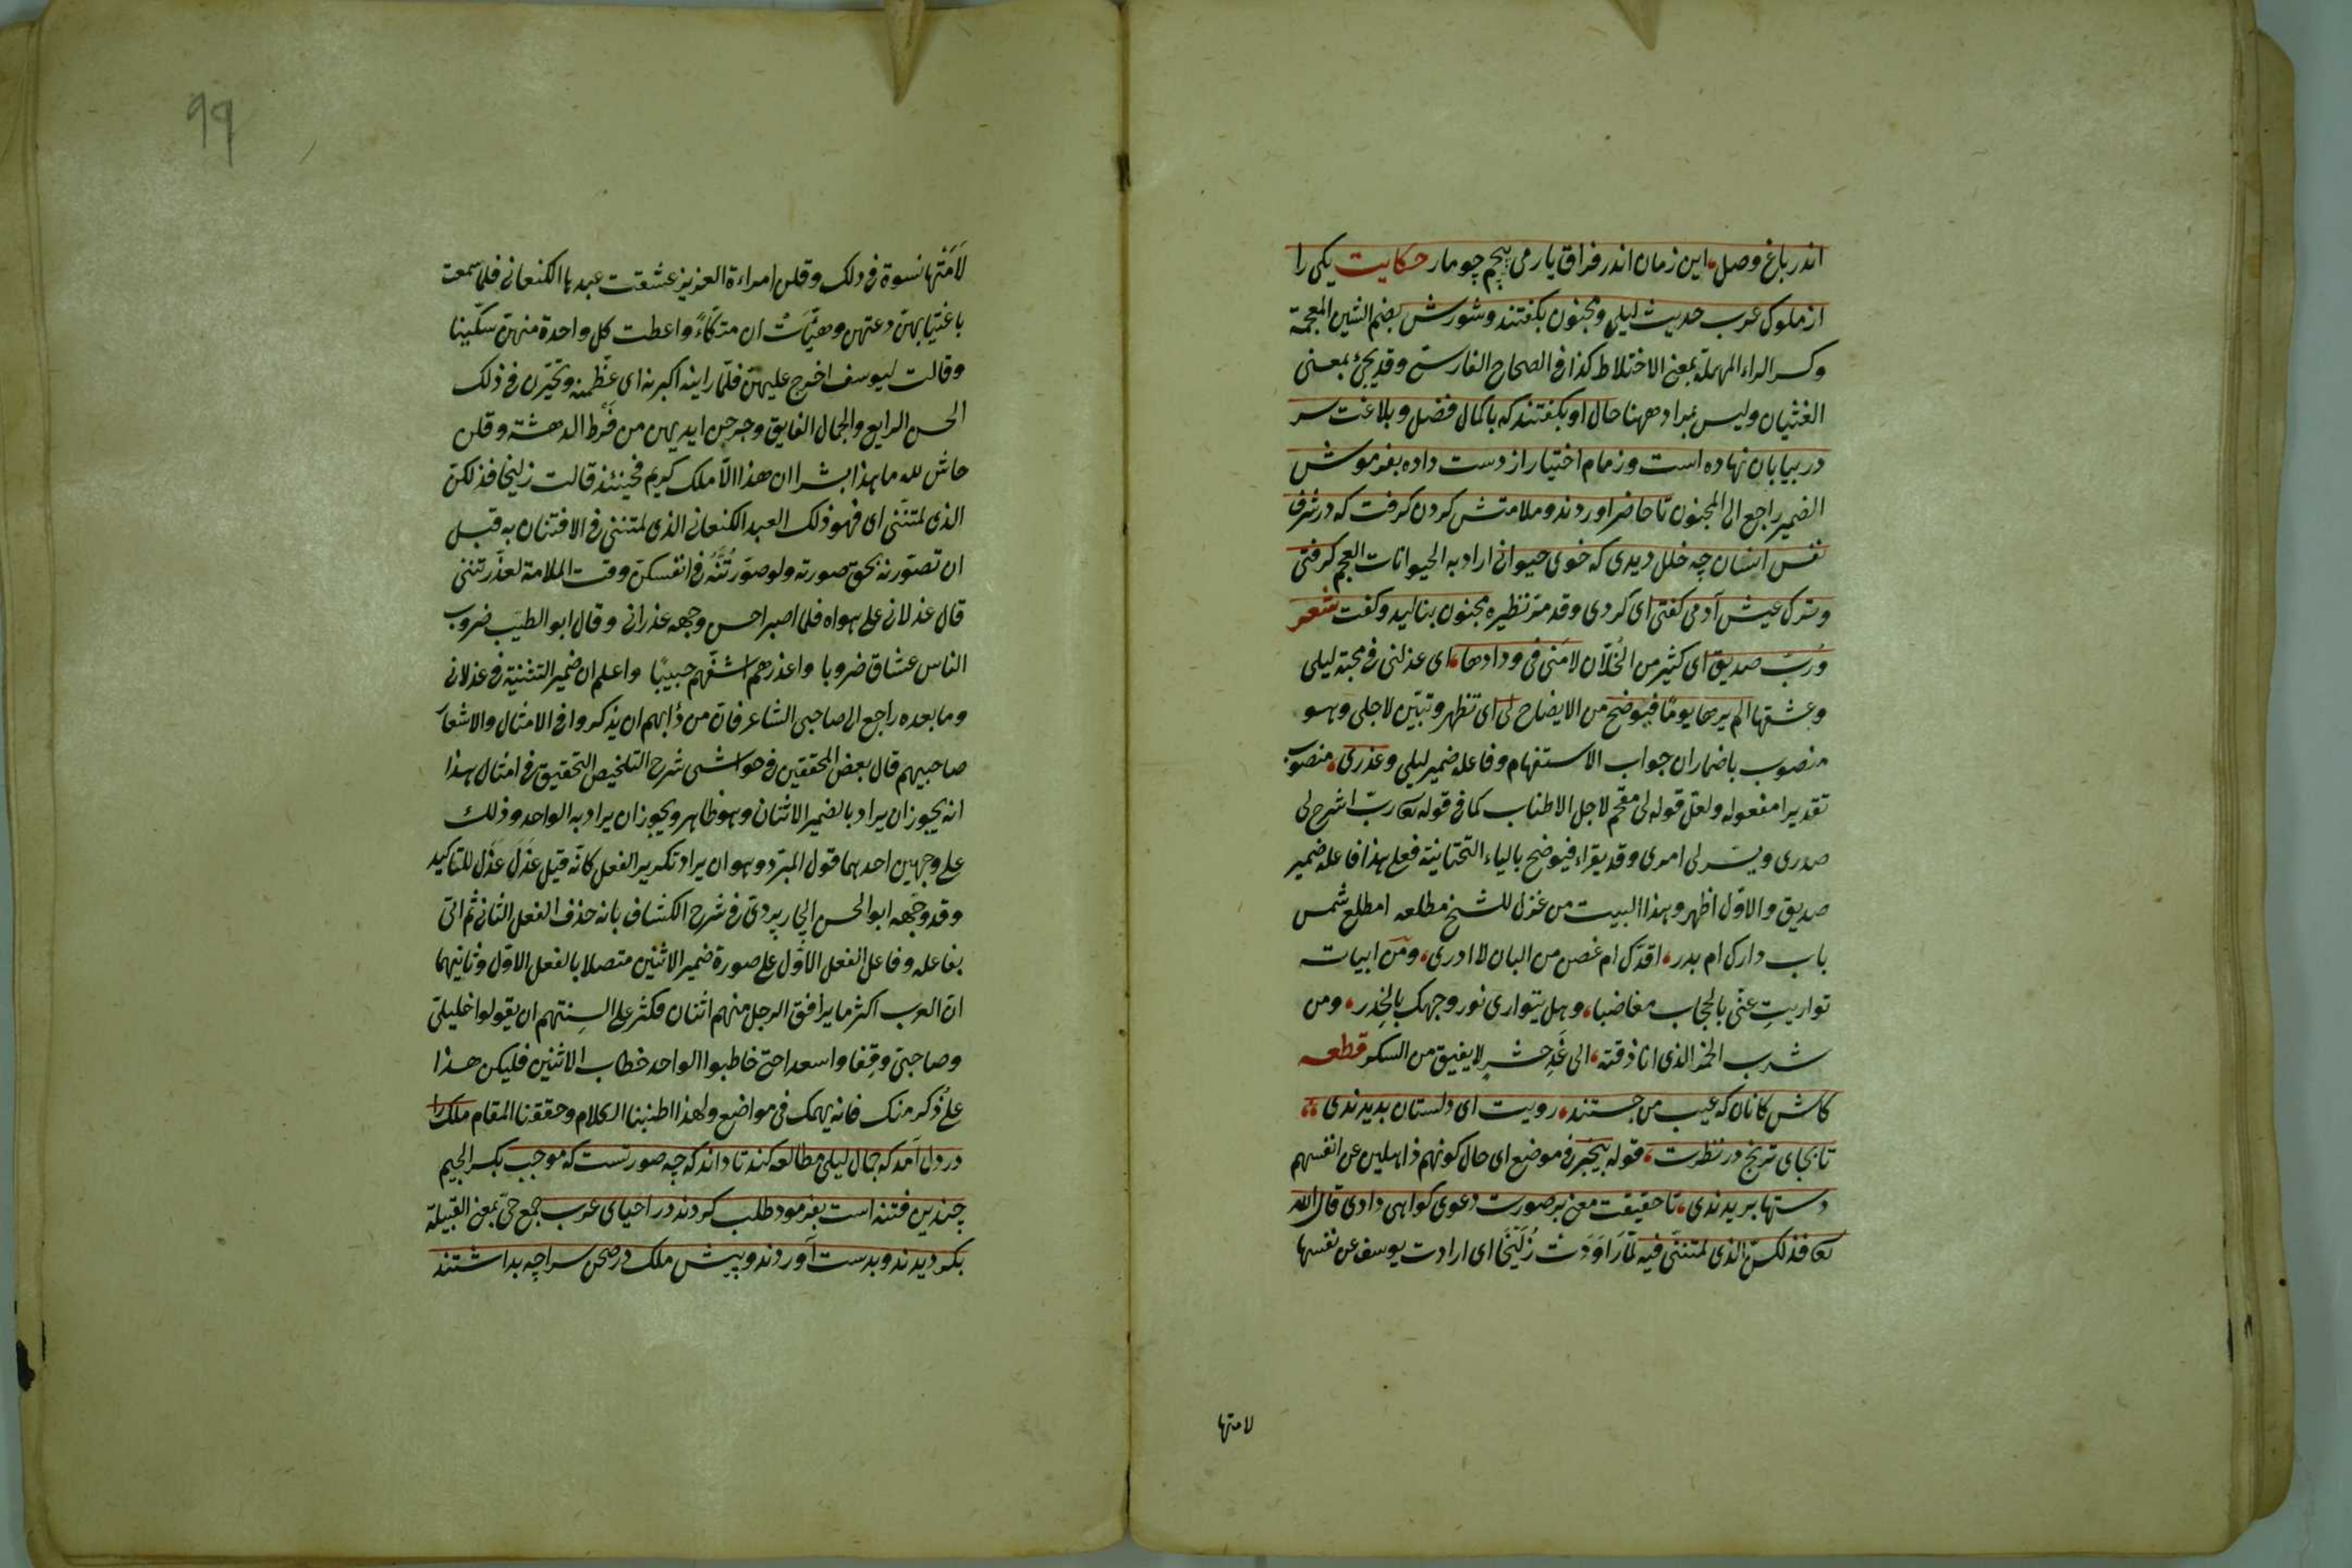 اندر باغ وصل این زمان اندر فراق یار می پیچم چو مار حکایت یکی را
از ملوک عرب حدیث لیلی و مجنون بگفتند و شورش بضم الشین المعجمة
وکسر الراء المهملة بمعنی الاختلاط کذا فی الصحاح الفارسی وقد یجئ بمعنی
الغثیان ولیس بمراد ههنا حال او بگفتند که با کمال فضل و بلاغت سر
در بیابان نهاده است و زمام اختیار از دست داده بفرموش
الضمیر راجع الی المجنون تا حاضر اوردند و ملامتش کردن کرفت که در شرف
نفس انسان چه خلل دیدی که خوی حیوانی اراد به الحیوانات العجم کرفتی
وترک عیش آدمی کفتی ای کردی وقد مر نظیره مجنون بنالید وکفت شعر
ورُبّ صدیق ای کثیر من الخُلّان لامَنی فی ودادها ای عذلنی فی محبة لیلی
وعشقها الم یرها یومًا فیوضح من الایضاح لی ای تظهر وتبیّن لاجلی وهو
منصوب باضمار ان جواب الاستفهام وفاعله ضمیر لیلی وعذری منصوب
تقدیرا مفعوله ولعل قوله لی مقحم لاجل الاطناب کما فی قوله تعا رب اشرح لی
صدری ویسر لی امری وقد یقراء فیوضح بالیاء التحتانیة فعلی هذا فاعله ضمیر
صدیق والاوّل اظهر وهذا البیت من غزل للشیخ مطلعه امطلع شمس
باب دارک ام بدر اقدّک ام غصن من البان لا ادری ومن ابیاته
تواریتِ عنّی بالحجاب مغاضبا وهل یتواری نور وجهک بالخِدر ومن
شرب الخمر الذی انا ذقته الی غَدِ حشرٍ لا یفیق من السکر قطعه
کاش کانان که عیب من جستند رویت ای دلستان بدیدندی
تا بجای ترنج در نظرت قوله بیخبر فی موضع ای حال کونهم ذاهلین عن انفسهم
دستها بریدندی تا حقیقت معنی بر صورت دعوی کواهی دادی قال الله
تعا فذلکنّ الذی لمتننی فیه لمّا رَاوَدَتْ زُلَیْخَا ای ارادت یوسف عن نفسها
لامتها
۹۹
لَامَتْها نسوة فی ذلک وقلن امراءة العزیز عشقت عبدها الکنعانی فلما سمعت
باغتیابهنّ دعتهن وهیّأتْ ان متّکاءً واعطت کل واحدة منهنّ سکّینا
وقالت لیوسف اخرج علیهنّ فلمّا راینه اکبرنه ای عظّمنه وتحیّرن فی ذلک
الحسن الرایع والجمال الفایق وجرحن ایدیهن من فَرط الدهشة وقلن
حاش لله ما هذا بشرا ان هذا الّا ملک کریم فحینئذ قالت زلیخا فذلکنّ
الذی لمتننی ای فهو ذلک العبد الکنعانی الذی لمتننی فی الافتنان به قبل
ان تصوّرنه بحق صورته ولو صوّرتُنَّهُ فی انفسکنّ وقت الملامة لعذّرتننی
قال عذلانی علی هواه فلما ابصرا حسن وجهه عذرانی وقال ابو الطیّب ضروب
الناس عشاق ضروبا واعذرهم اشفّهم حبیبًا واعلم ان ضمیر التثنیة فی عذلانی
وما بعده راجع الی صاحبی الشاعر فانّ من دابهم ان یذکروا فی الامثال والاشعار
صاحبیهم قال بعض المحققین فی حواشی شرح التلخیص التحقیق فی امثال هذا
انه یجوز ان یراد بالضمیر الاثنان وهو ظاهر ویجوز ان یراد به الواحد وذلک
علی وجهین احدهما قول المبرّد وهو ان یراد تکریر الفعل کانّه قیل عذَلَ عذَل للتاکید
وقد وجّهه ابو الحسن الچارپردی فی شرح الکشاف بانه حذف الفعل الثانی ثم اتی
بفاعله وفاعل الفعل الاوّل علی صورة ضمیر الاثنین متصلا بالفعل الاوّل وثانیهما
انّ العرب اکثر ما یرافق الرجل منهم اثنان فکثر علی السنتهم ان یقولوا خلیلیّ
وصاحبیّ وقِفا واسعدا حتی خاطبوا الواحد خطاب الاثنین فلیکن هذا
علی ذُکر منک فانه یهمک فی مواضع ولهذا اطنبنا الکلام وحققنا المقام ملک را
در دل آمد که جمال لیلی مطالعه کند تا داند که چه صورتست که موجب بکسر الجیم
چندین فتنه است بفرمود طلب کردند در احیای عرب جمع حیّ بمعنی القبیلة
بکردیدند و بدست آوردند و پیش ملک در صحن سراچه بداشتند